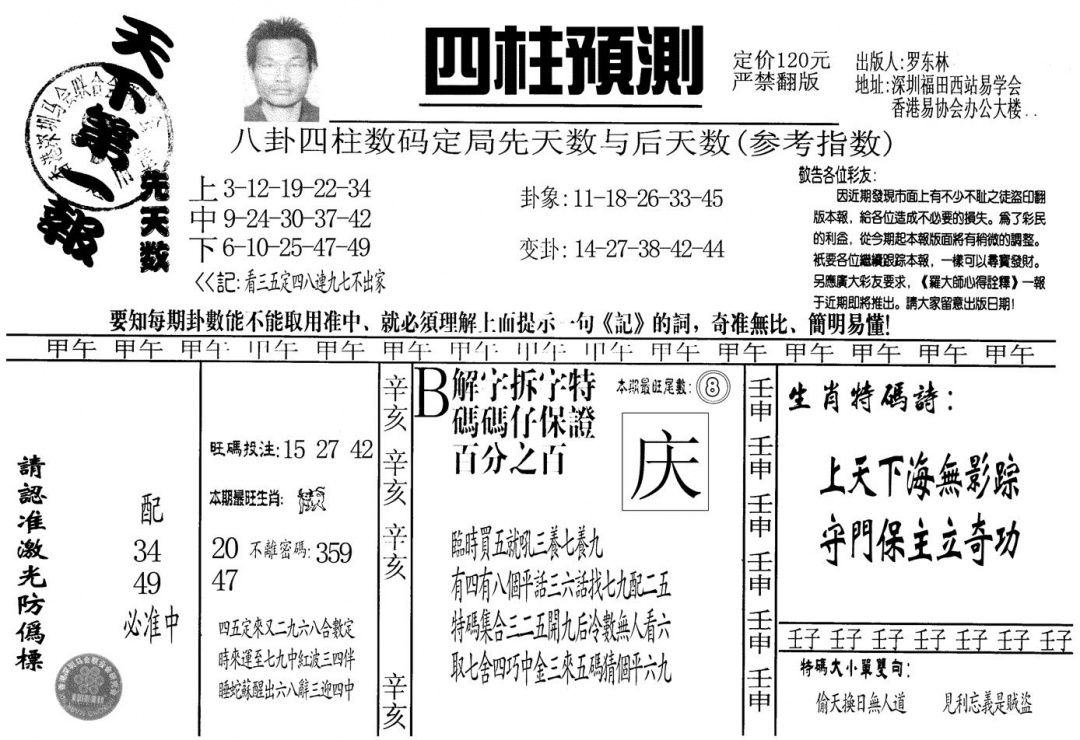 天下第一報
四柱預測
定价120元
严禁翻版
出版人:罗东林
地址:深圳福田西站易学会
香港易协会办公大楼..
八卦四柱数码定局先天数与后天数(参考指数)
先天数
上 3-12-19-22-34
中 9-24-30-37-42
下 6-10-25-47-49
卦象:11-18-26-33-45
变卦:14-27-38-42-44
<<記:看三五定四八連九七不出家
敬告各位彩友:
因近期發現市面上有不少不耻之徒盜印翻
版本報，給各位造成不必要的損失。爲了彩民
的利益，從今期起本報版面將有稍微的調整。
祇要各位繼續跟踪本報，一樣可以尋寶發財。
另應廣大彩友要求，《羅大師心得詮釋》一報
于近期即將推出。請大家留意出版日期!
要知每期卦數能不能取用准中、就必須理解上面提示一句《記》的詞，奇准無比、簡明易懂!
甲午 甲午 甲午 甲午 甲午 甲午 甲午 甲午 甲午 甲午 甲午 甲午 甲午 甲午 甲午
請認准激光防僞標
配
34
49
必准中
旺碼投注:15 27 42
本期最旺生肖:
20 不離密碼:359
47
四五定來又二九六八合數定
時來運至七九中紅波三四伴
睡蛇蘇醒出六八辭三迎四中
辛亥
辛亥
辛亥
辛亥
B 解字拆字特
碼碼仔保證
百分之百
本期最旺尾數:8
庆
臨時買五就吼三養七養九
有四有八個平話三六話找七九配二五
特碼集合三二五開九后冷數無人看六
取七舍四巧中金三來五碼猜個平六九
壬申
壬申
壬申
壬申
壬申
壬申
生肖特碼詩:
上天下海無影踪
守門保主立奇功
壬子 壬子 壬子 壬子 壬子 壬子 壬子
特碼大小單雙句:
偷天換日無人道 見利忘義是賊盜